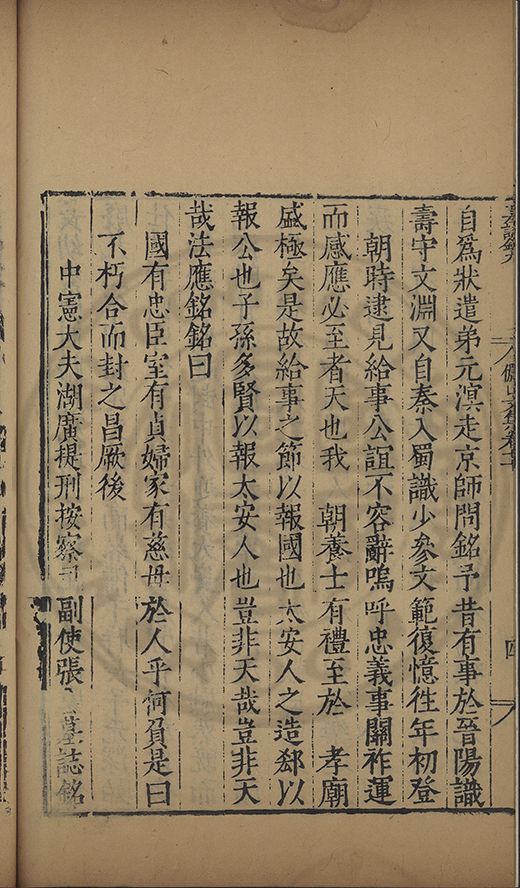 自爲狀遣弟元溟走京師問銘予昔有事於晉陽識
壽守文淵又自秦入蜀識少參文範復憶徃年初登
朝時逮見給事公誼不容辭嗚呼忠義事關祚運
而感應必至者天也我 朝養士有禮至於 孝廟
盛極矣是故給事之節以報國也太安人之造郄以
報公也子孫多賢以報太安人也豈非天哉豈非天
哉法應銘銘曰
國有忠臣室有貞婦家有慈母於人乎何負是曰
不朽合而封之昌厥後
中憲大夫湖廣提刑按察司副使張 墓誌銘
四